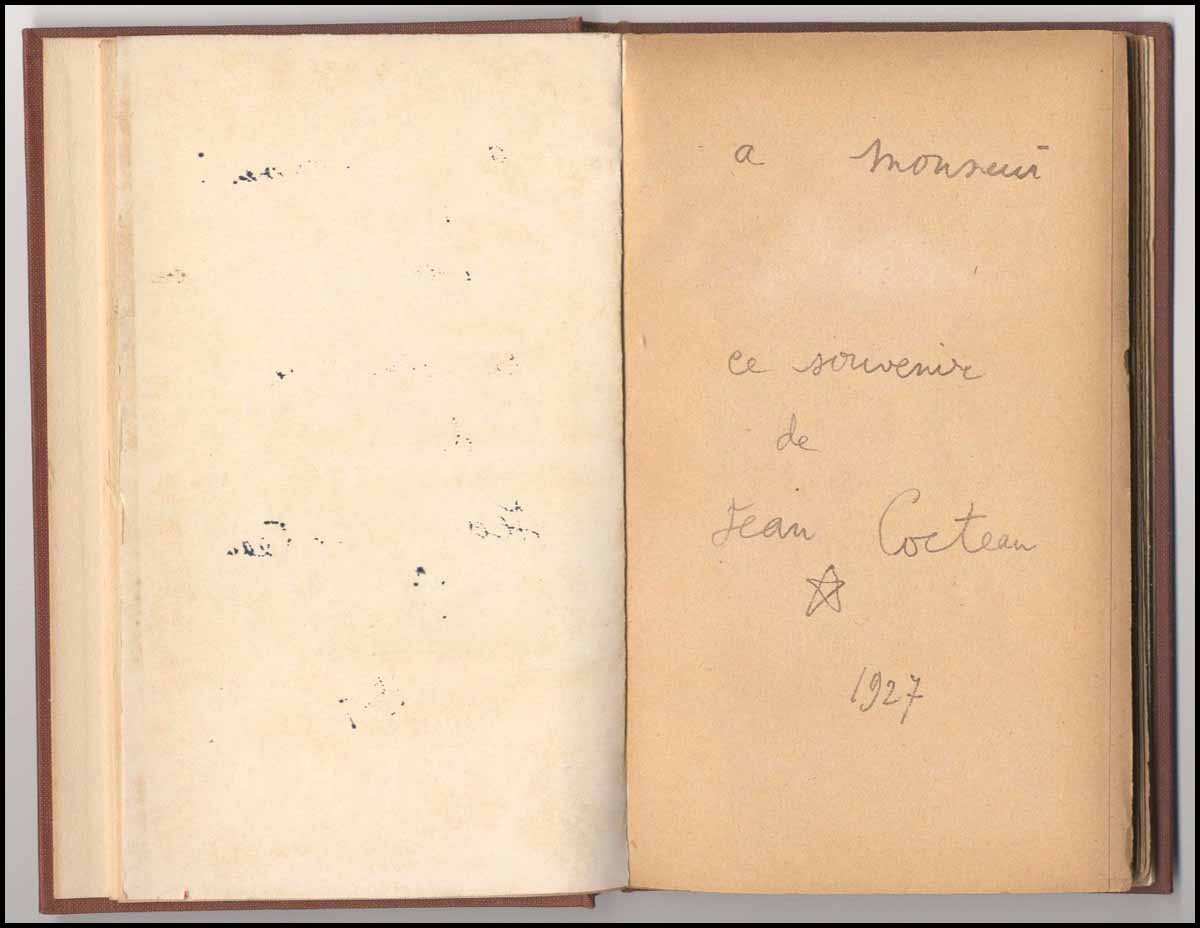 a Monsieur
ce souvenir
de
Jean Cocteau
1927